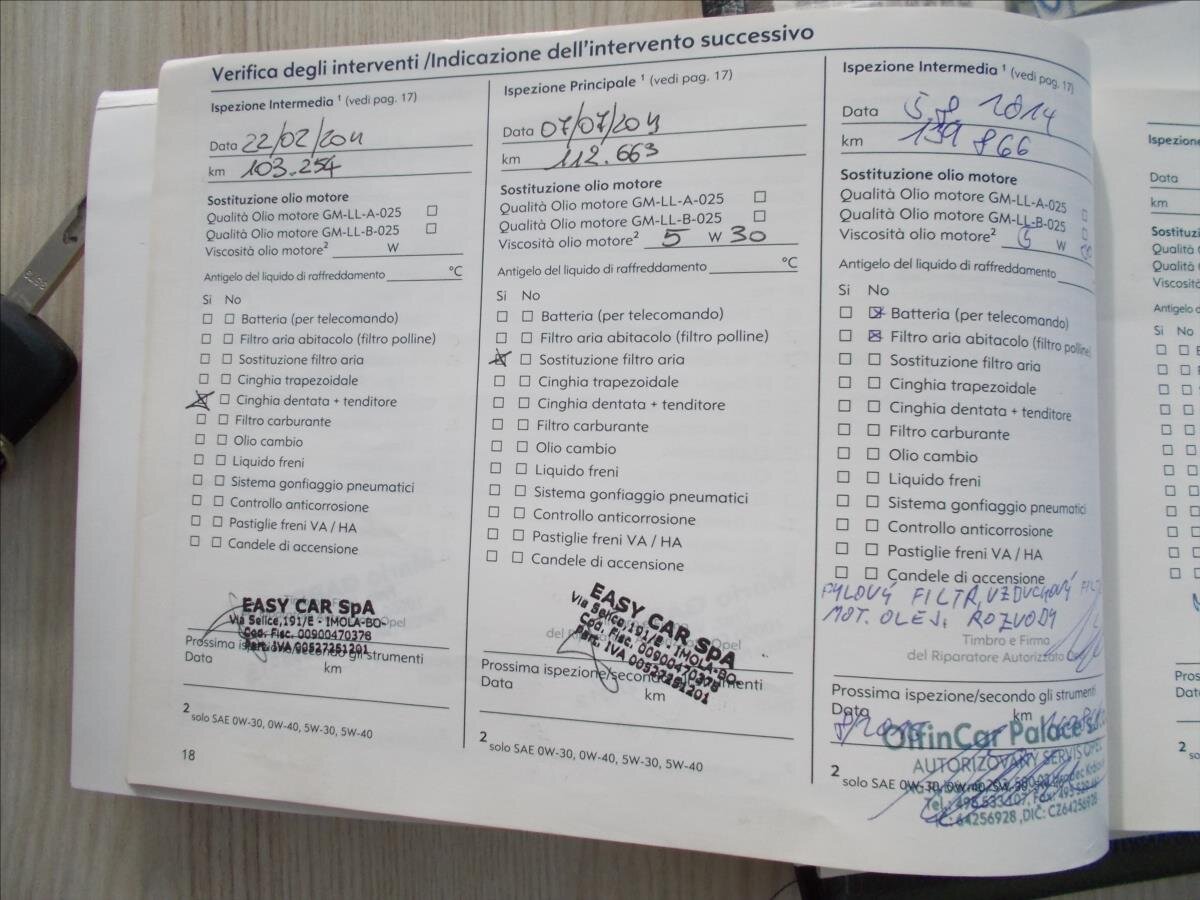 Verifica degli interventi /Indicazione dell'intervento successivo
Ispezione Intermedia ¹ (vedi pag. 17)
Data 22/02/2011
km 103.254
Sostituzione olio motore
Qualità Olio motore GM-LL-A-025 ☐
Qualità Olio motore GM-LL-B-025 ☐
Viscosità olio motore² W
Antigelo del liquido di raffreddamento °C
Si No
☐ ☐ Batteria (per telecomando)
☐ ☐ Filtro aria abitacolo (filtro polline)
☐ ☐ Sostituzione filtro aria
☐ ☐ Cinghia trapezoidale
☒ ☐ Cinghia dentata + tenditore
☐ ☐ Filtro carburante
☐ ☐ Olio cambio
☐ ☐ Liquido freni
☐ ☐ Sistema gonfiaggio pneumatici
☐ ☐ Controllo anticorrosione
☐ ☐ Pastiglie freni VA / HA
☐ ☐ Candele di accensione
EASY CAR SpA
Via Selice,191/E - IMOLA-BO-
Cod. Fisc. 00900470378
Part. IVA 00527251201
Opel
Prossima ispezione/secondo gli strumenti
Data km
2 solo SAE 0W-30, 0W-40, 5W-30, 5W-40
18
Ispezione Principale ¹ (vedi pag. 17)
Data 07/07/2011
km 112.663
Sostituzione olio motore
Qualità Olio motore GM-LL-A-025 ☐
Qualità Olio motore GM-LL-B-025 ☐
Viscosità olio motore² 5 W 30
Antigelo del liquido di raffreddamento °C
Si No
☐ ☐ Batteria (per telecomando)
☐ ☐ Filtro aria abitacolo (filtro polline)
☒ ☐ Sostituzione filtro aria
☐ ☐ Cinghia trapezoidale
☐ ☐ Cinghia dentata + tenditore
☐ ☐ Filtro carburante
☐ ☐ Olio cambio
☐ ☐ Liquido freni
☐ ☐ Sistema gonfiaggio pneumatici
☐ ☐ Controllo anticorrosione
☐ ☐ Pastiglie freni VA / HA
☐ ☐ Candele di accensione
EASY CAR SpA
Via Selice,191/E - IMOLA-BO-
Cod. Fisc. 00900470378
Part. IVA 00527251201
del Opel
Prossima ispezione/secondo gli strumenti
Data km
2 solo SAE 0W-30, 0W-40, 5W-30, 5W-40
Ispezione Intermedia ¹ (vedi pag. 17)
Data 5.8 2014
km 139 866
Sostituzione olio motore
Qualità Olio motore GM-LL-A-025 ☐
Qualità Olio motore GM-LL-B-025 ☐
Viscosità olio motore² 5 W 30
Antigelo del liquido di raffreddamento
Si No
☐ ☒ Batteria (per telecomando)
☐ ☒ Filtro aria abitacolo (filtro polline)
☐ ☐ Sostituzione filtro aria
☐ ☐ Cinghia trapezoidale
☐ ☐ Cinghia dentata + tenditore
☐ ☐ Filtro carburante
☐ ☐ Olio cambio
☐ ☐ Liquido freni
☐ ☐ Sistema gonfiaggio pneumatici
☐ ☐ Controllo anticorrosione
☐ ☐ Pastiglie freni VA / HA
☐ ☐ Candele di accensione
PYLOVÝ FILTR, VZDUCHOVÝ FILTR
MOT. OLEJ, ROZVODY
Timbro e Firma
del Riparatore Autorizzato
Prossima ispezione/secondo gli strumenti
Data km
OlfinCar Palace
AUTORIZOVANÝ SERVIS OPEL
2 solo SAE 0W-30, 0W-40, 5W-30
Tel.: 495 533 107, Fax:
IČ: 64256928 ,DIČ: CZ64256928
Ispezione
Data
km
Qualità
Qualità
Viscosità
Antigelo
Si No
2